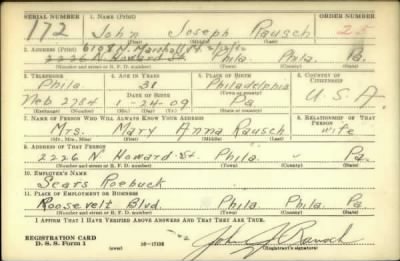 SERIAL NUMBER 1. NAME (Print) ORDER NUMBER
172 John Joseph Rausch 25
(First) (Middle) (Last)
2. ADDRESS (Print) 6108 N. Marshall St.
2226 N. Howard St. Phila Phila. Pa.
(Number and street or R. F. D. number) (Town) (County) (State)
3. TELEPHONE 4. AGE IN YEARS 5. PLACE OF BIRTH 6. COUNTRY OF CITIZENSHIP
Phila 31 Philadelphia
DATE OF BIRTH
Neb 2784 1-24-09 Pa U.S.A.
(Exchange) (Number) (Mo.) (Day) (Yr.) (State or country)
7. NAME OF PERSON WHO WILL ALWAYS KNOW YOUR ADDRESS 8. RELATIONSHIP OF THAT PERSON
Mrs. Mary Anna Rausch wife
(Mr., Mrs., Miss) (First) (Middle) (Last)
9. ADDRESS OF THAT PERSON
2226 N. Howard St. Phila. " Pa.
(Number and street or R. F. D. number) (Town) (County) (State)
10. EMPLOYER'S NAME
Sears Roebuck
11. PLACE OF EMPLOYMENT OR BUSINESS
Roosevelt Blvd. Phila Phila. Pa.
(Number and street or R. F. D. number) (Town) (County) (State)
I AFFIRM THAT I HAVE VERIFIED ABOVE ANSWERS AND THAT THEY ARE TRUE.
REGISTRATION CARD
D. S. S. Form 1 (over) 16-17105 John J Rausch
(Registrant's signature)